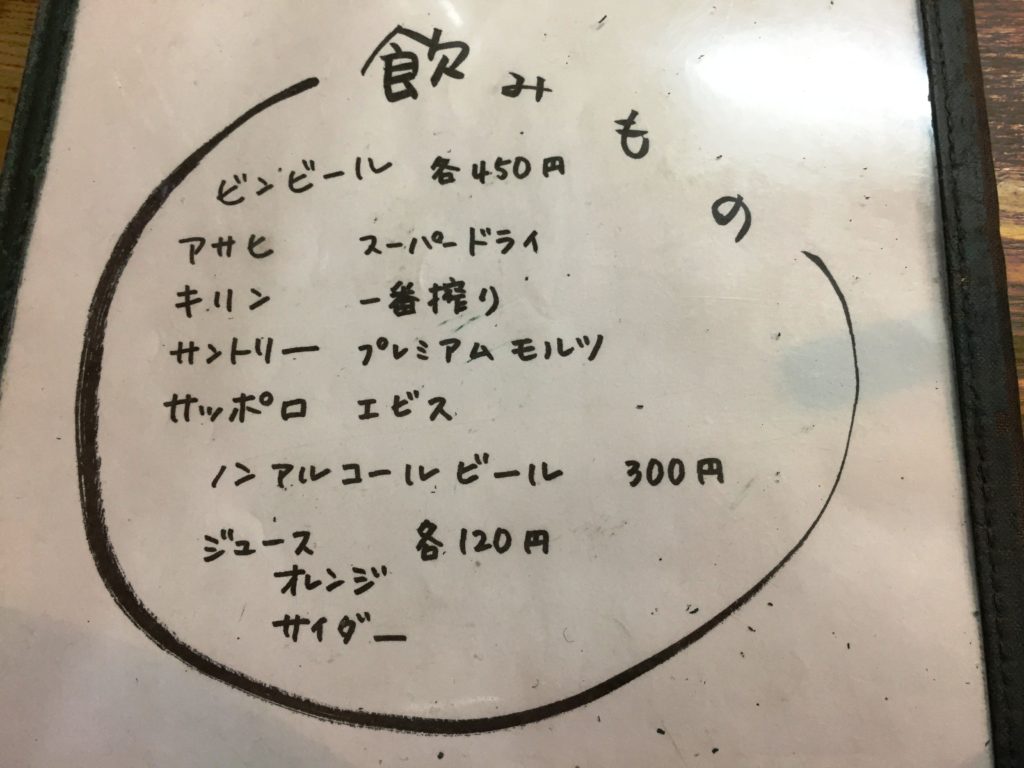 飲みもの
ビンビール 各450円
アサヒ スーパードライ
キリン 一番搾り
サントリー プレミアムモルツ
サッポロ エビス
ノンアルコールビール 300円
ジュース 各120円
オレンジ
サイダー